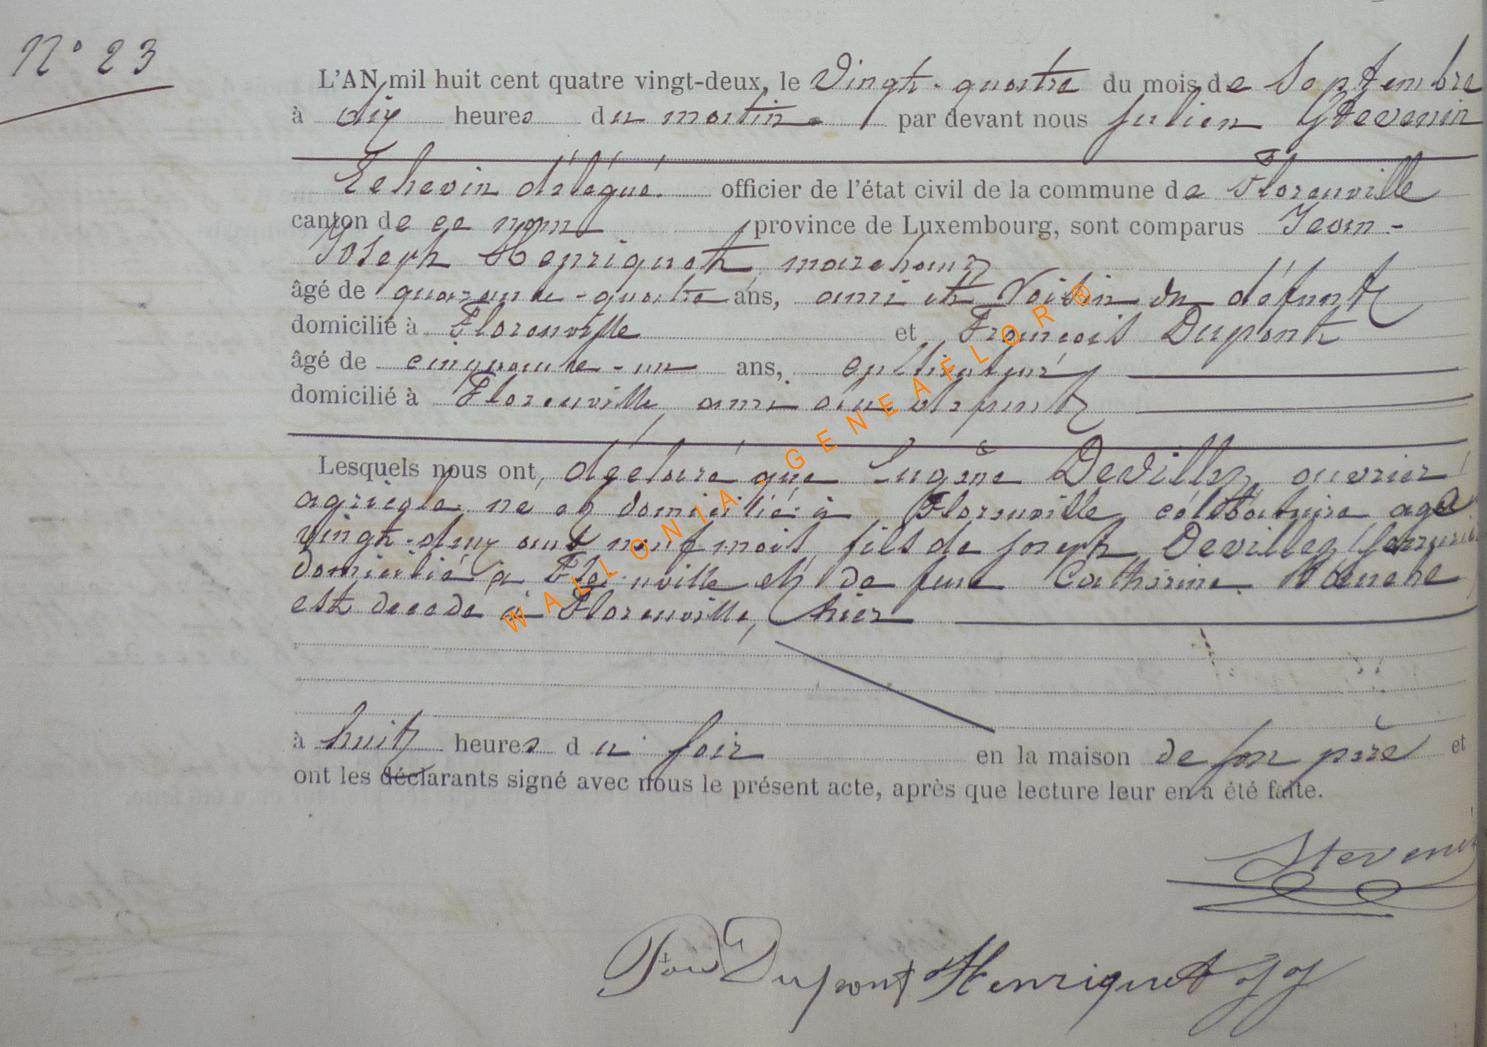 N° 23
L'AN mil huit cent quatre vingt-deux, le Vingt-quatre du mois de Septembre
à dix heures du matin par devant nous Julien Stevenin
Echevin délégué officier de l'état civil de la commune de Florenville
canton de ce nom province de Luxembourg, sont comparus Jean-
Joseph Henriquet, marchand
âgé de quarante-quatre ans, ami et Voisin du défunt
domicilié à Florenville et François Dupont
âgé de cinquante-un ans, cultivateur
domicilié à Florenville ami du défunt
Lesquels nous ont déclaré que Eugène Devillez, ouvrier
agricole né et domicilié à Florenville célibataire agé
vingt-deux ans neuf mois fils de Joseph Devillez
domicilié à Florenville et de feue Catherine
est decedé à Florenville, hier
à huit heures du soir en la maison de son père et
ont les déclarants signé avec nous le présent acte, après que lecture leur en a été faite.
Stevenin
Dupont Henriquet JJ
WALLONIA - GENEAFLOR®